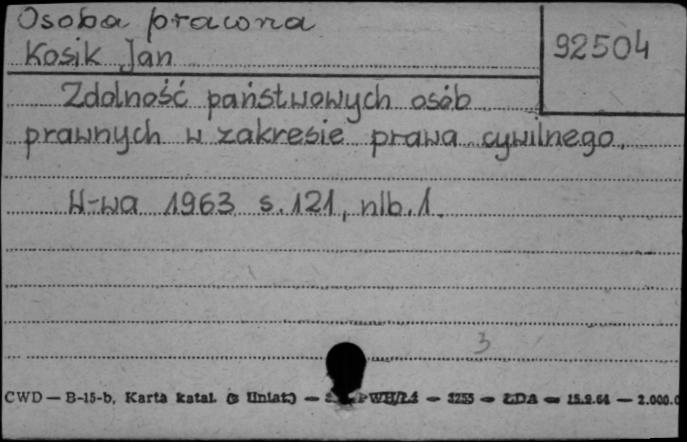 Osoba prawna
Kosik Jan
92504
Zdolność państwowych osób
prawnych w zakresie prawa cywilnego.
W-wa 1963 s. 121, nlb. 1.
3
CWD — B-15-b, Karta katal. — ŁDA — 15.2.64 — 2.000.0